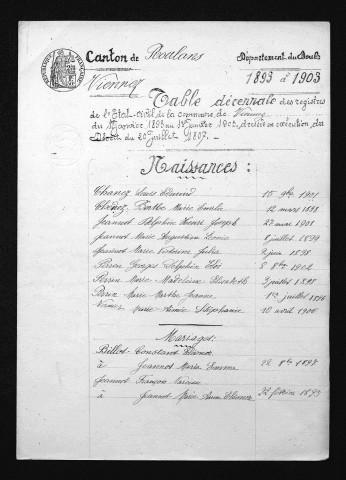 Canton de Roulans Département du Doubs
Vennes 1893 à 1903
Table décennale des registres
de l'Etat-civil de la commune de Vennes
du 1er Janvier 1893 au 1er Janvier 1903, dressée en exécution du
Décret du 20 Juillet 1807.
Naissances :
Louis Edouard 15 9bre 1901
Marie 12 mars 1898
Jeannot Delphin Henri Joseph 27 mai 1901
Jeannot Marie Augustine Léonie 8 juillet 1899
Jeannot Marie Victorine Julia 2 juin 1898
Perrin Georges 8 8bre 1902
Perrin Marie-Madeleine Elisabeth 3 juillet 1898
Perrin Marie Marthe Jeanne 1er juillet 1896
Marie Aimée Stéphanie 10 avril 1900
Mariages:
Billot Constant
à Jeannot Maria 22 8bre 1898
Jeannot François Narcisse
à Jeannot Marie Anna 22 février 1893